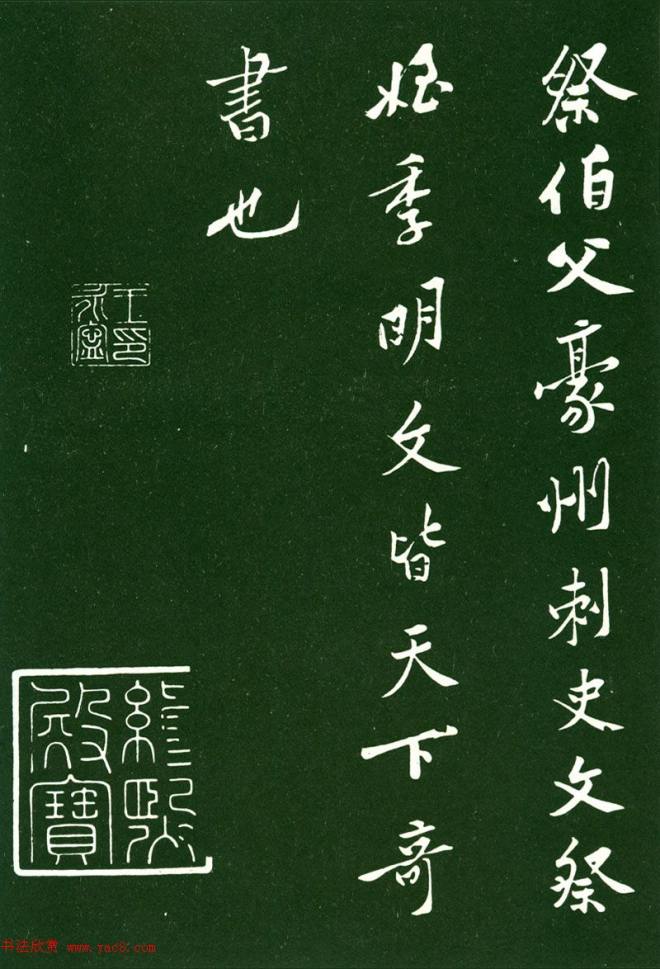 祭伯父豪州刺史文祭
姪季明文皆天下奇
書也
王印永寧
緝熙殿寶
书法欣赏 www.yac8.com